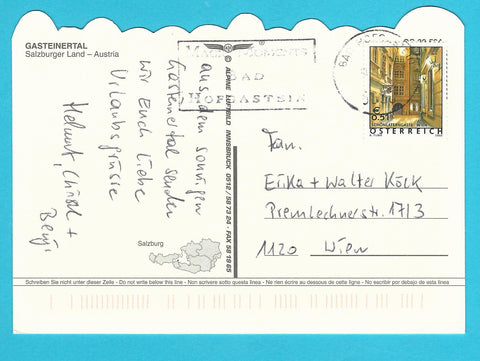 GASTEINERTAL
Salzburger Land – Austria
aus dem sonnigen
Gasteinertal senden
wir Euch liebe
Urlaubsgrüsse
Helmut, Christl +
Benji
© ALPINE LUFTBILD INNSBRUCK 0512 / 58 73 24 - FAX 58 19 65
BAD
HOFGASTEIN
€
0,51
SCHÖNLATERNGASSE · WIEN
ÖSTERREICH
Fam.
Erika + Walter Köck
Premlechnerstr. 17/3
1120 Wien
Salzburg
Schreiben Sie nicht unter dieser Zeile - Do not write below this line - Non scrivere sotto questa linea - Ne rien écrire au dessous de cette ligne - No escribir por debajo de esta linea